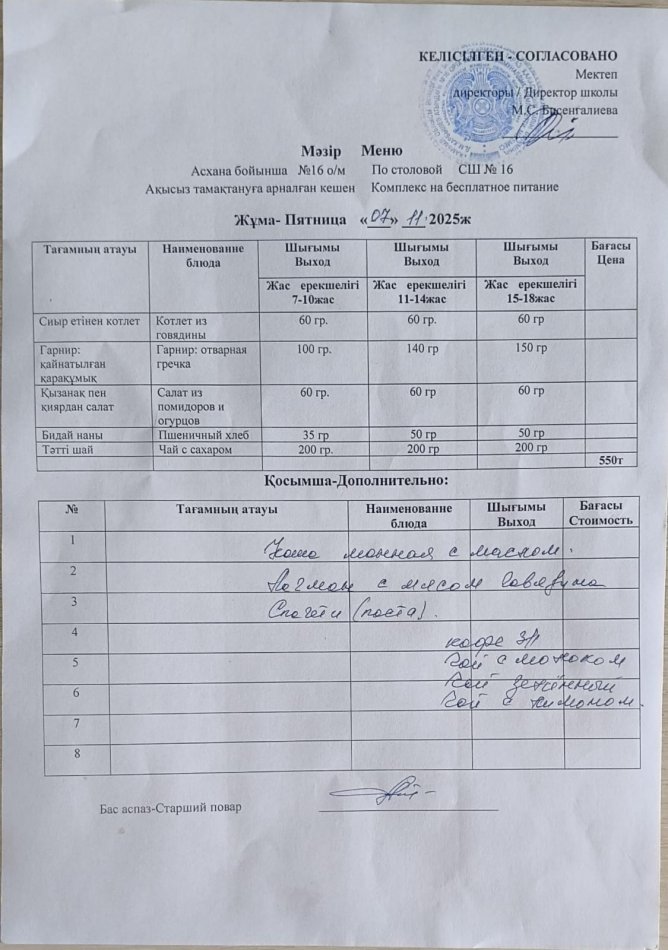 КЕЛІСІЛГЕН - СОГЛАСОВАНО
Мектеп
директоры / Директор школы
М.С. Бисенгалиева
Мәзір Меню
Асхана бойынша №16 о/м По столовой СШ № 16
Ақысыз тамақтануға арналған кешен Комплекс на бесплатное питание
Жұма- Пятница «07» 11 2025ж
Тағамның атауы Наименование блюда Шығымы Выход Шығымы Выход Шығымы Выход Бағасы Цена
Жас ерекшелігі 7-10жас Жас ерекшелігі 11-14жас Жас ерекшелігі 15-18жас
Сиыр етінен котлет Котлет из говядины 60 гр. 60 гр. 60 гр
Гарнир: қайнатылған қарақұмық Гарнир: отварная гречка 100 гр. 140 гр 150 гр
Қызанақ пен қиярдан салат Салат из помидоров и огурцов 60 гр. 60 гр 60 гр
Бидай наны Пшеничный хлеб 35 гр 50 гр 50 гр
Тәтті шай Чай с сахаром 200 гр. 200 гр 200 гр
550т
Қосымша-Дополнительно:
№ Тағамның атауы Наименование блюда Шығымы Выход Бағасы Стоимость
1 Каша манная с маслом.
2 Лагман с мясом говядина
3 Спагети (паста).
4 кофе 3/1
5 Чай с молоком
Чай зелённый
6 Чай с лимоном.
7
8
Бас аспаз-Старший повар